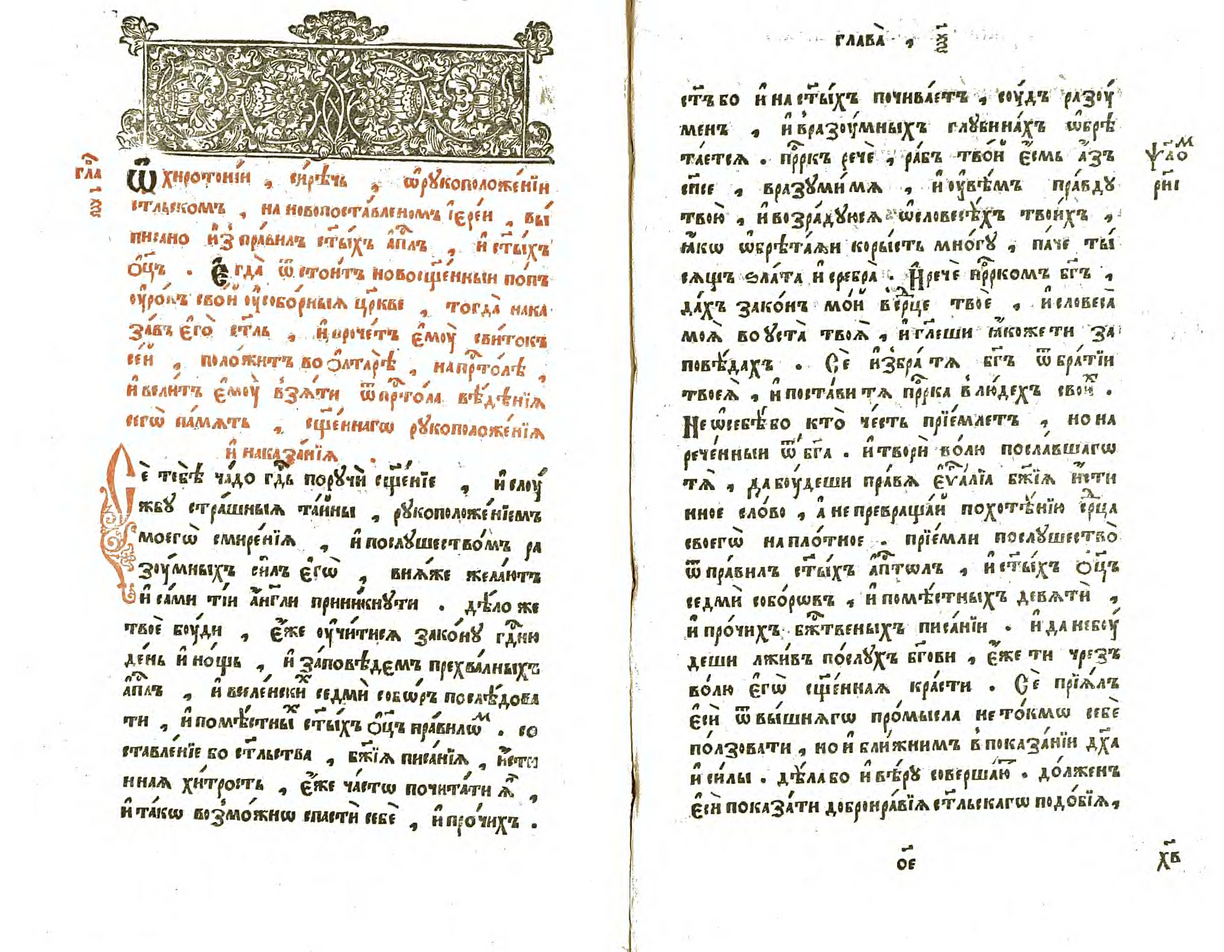 гла
Ѿ хиротонїи , сирѣчь , ѡрукоположенїи
ст҃льскомъ , на новопоставленомъ їереи , вы
писано и҆з̾ правилъ ст҃ыхъ а҆п҃лъ , и҆ ст҃ыхъ
ѻ҆ц҃ъ . Е҆гда̀ ѿстои́тъ новосщ҃енныи попъ
ᲂу҆рокъ сво́й ᲂу҆соборныѧ цр҃кве , тогда̀ нака
за́въ є҆го̀ ст҃ль , и҆прочетъ є҆мꙋ̀ свитокъ
се́й , положитъ во ѻ҆лтарѣ̀ , напр҃то́лѣ ,
и҆ вели́тъ є҆мꙋ̀ взѧ́ти ѿ пр҃то́ла вѣ́дѣнїѧ
сегѡ̀ па́мѧть , сщ҃е́ннагѡ рꙋкоположе́нїѧ
и҆ наказа́нїѧ .
Сѐ тебѣ̀ ча́до гд҃ь порꙋчѝ сщ҃е́нїе , и҆ слꙋ́
жбꙋ стра́шныѧ та́йны , рꙋкоположе́нїемъ
моегѡ̀ смире́нїѧ , и҆ послꙋшество́мъ ра
зꙋ́мныхъ си́лъ є҆гѡ̀ , внѧ́же жела́ютъ
и҆ са́ми ті́и а҆́нг҃ли прини́кнꙋти . дѣ́ло же
твоѐ бꙋ́ди , є҆́же ᲂу҆чи́тисѧ зако́нꙋ гд҃ню
де́нь и҆ но́щь , и҆ за́повѣдемъ прехва́лныхъ
а҆п҃лъ , и҆ вселе́нскихъ седмѝ собѡ́ръ послѣ́дова
ти , и҆ помѣ́стныхъ ст҃ы́хъ ѻ҆ц҃ъ пра́вилѡм . со
ставле́нїе бо ст҃льства , бж҃їѧ писа́нїѧ , и҆́сти
ннаѧ хи́трость , є҆́же ча́стѡ почита́ти ѧ҆̀ ,
и҆ та́кѡ возмо́жнѡ спастѝ себѐ , и҆ про́чихъ .
ГЛАВА̀ ,
ст҃ъ бо и҆ на ст҃ы́хъ почива́етъ , сꙋ́дъ разꙋ́
менъ , и҆ вразꙋ́мныхъ глꙋбина́хъ ѡ҆брѣ
та́етсѧ . пр҃ркъ речѐ , ра́бъ тво́й є҆́смь а҆́зъ
сп҃се , вразꙋми́ мѧ , и҆ ᲂу҆вѣ́мъ пра́вдꙋ
твою̀ , и҆ возра́дꙋюсѧ ѡ҆словесѣ́хъ твои́хъ ,
ꙗ҆́кѡ ѡ҆брѣта́ѧи коры́сть мно́гꙋ , па́че ты́
сѧщъ зла́та и҆ сребра̀ . И҆ речѐ пр҃ркомъ бг҃ъ ,
да́хъ зако́нъ мо́й в̾ср҃це твоѐ , и҆ словеса̀
моѧ̀ во ᲂу҆ста̀ твоѧ̀ , и҆ гл҃еши ꙗ҆́коже ти за
повѣ́дахъ . Сѐ и҆збра́ тѧ бг҃ъ ѿ бра́тїи
твоеѧ̀ , и҆ поста́ви тѧ пр҃рка в̾ лю́дехъ свои́х .
Не ѡ҆себѣ́ бо кто̀ че́сть прїе́млетъ , но на
рече́нныи ѿ бг҃а . и҆ творѝ во́лю посла́вшагѡ
тѧ̀ , да бꙋ́деши пра́вѧ є҆ѵⷢ҇а́лїа бж҃їѧ и҆́сти
нное сло́во , а҆ не превраща́й похотѣ́нїю ср҃ца
своегѡ̀ на пло́тное . прїемли послꙋшество
ѿ пра́вилъ ст҃ы́хъ а҆пⷭ҇толъ , и҆ ст҃ы́хъ ѻ҆ц҃ъ
седмѝ собо́рѡвъ , и҆ помѣ́стныхъ девѧти̑ ,
и҆ про́чихъ бж҃твеныхъ писа́нїи . и҆ да не бꙋ́
деши лжи́въ по́слꙋхъ бг҃ови , є҆́же ти чрезъ
во́лю є҆гѡ̀ сщ҃е́ннаѧ кра́сти . Сѐ прїѧ́лъ
є҆сѝ ѿ вы́шнѧгѡ про́мысла не то́кмѡ себѐ
по́лзовати , но и҆ бли́жнимъ в̾ показа́нїи дх҃а
и҆ си́лы . дѣ́ла бо и҆ вѣ́рꙋ соверша́ютъ . до́лженъ
є҆сѝ показа́ти доброн́равїѧ ст҃льскагѡ подо́бїѧ ,
ѱало́м
рн҃і
ѻ҃е
х҃в